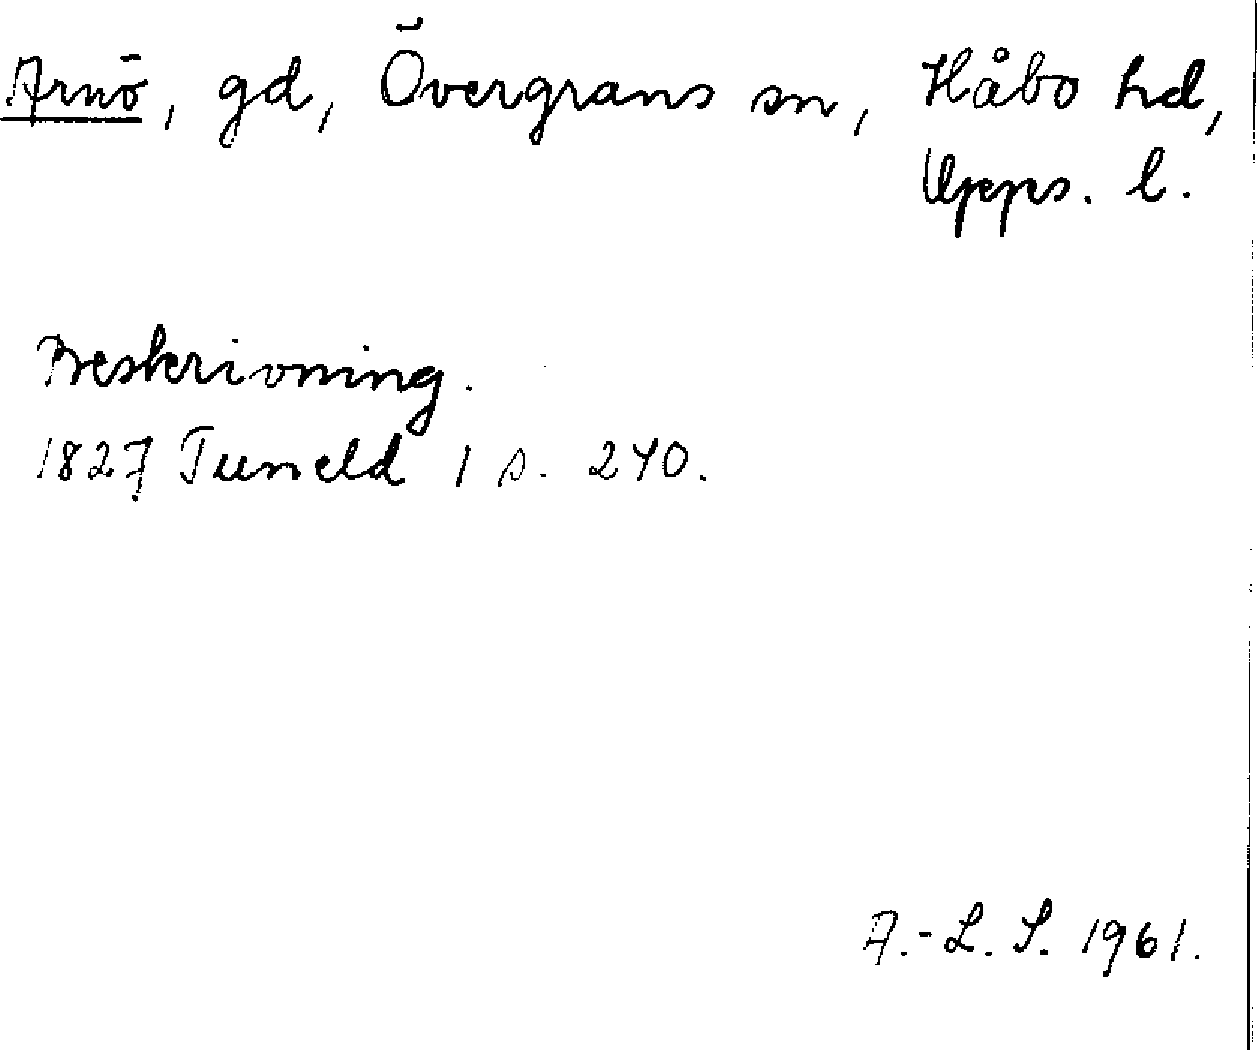 Arnö, gd, Övergrans sn, Håbo hd,
Upps. l.
Beskrivning.
1827 Tuneld 1 s. 240.
A.-L. S. 1961.